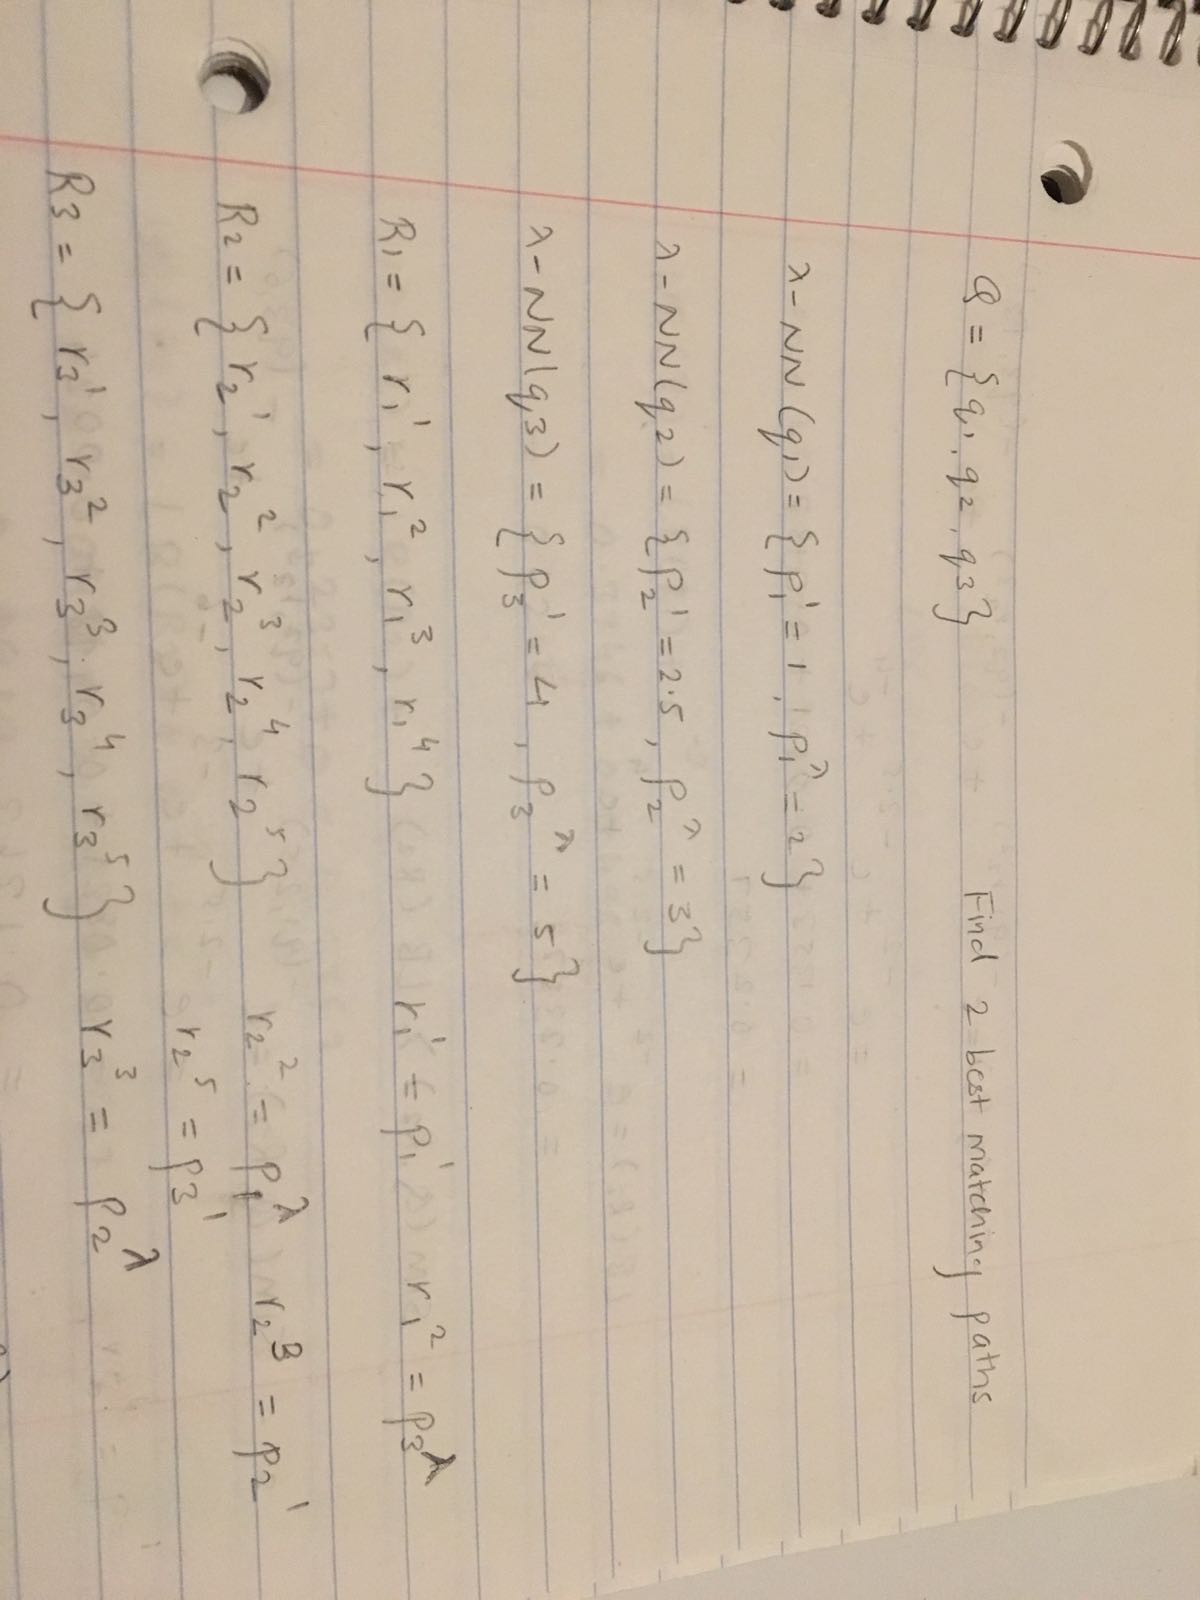 Q = {q₁, q₂, q₃} Find 2 best matching paths
λ-NN(q₁) = {p₁¹ = 1, p₁^λ = 2}
λ-NN(q₂) = {p₂¹ = 2.5, p₂^λ = 3}
λ-NN(q₃) = {p₃¹ = 4, p₃^λ = 5}
R₁ = {r₁¹, r₁², r₁³, r₁⁴} r₁¹ = p₁¹ r₁² = p₃^λ
R₂ = {r₂¹, r₂², r₂³, r₂⁴, r₂⁵} r₂² = p₁^λ r₂³ = p₂¹
r₂⁵ = p₃¹
R₃ = {r₃¹, r₃², r₃³, r₃⁴, r₃⁵} r₃³ = p₂^λ